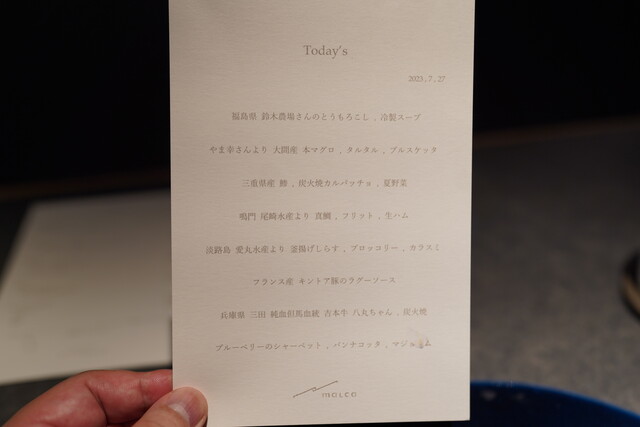 Today's
2023 . 7 . 27
福島県 鈴木農場さんのとうもろこし , 冷製スープ
やま幸さんより 大間産 本マグロ , タルタル , ブルスケッタ
三重県産 鰆 , 炭火焼カルパッチョ , 夏野菜
鳴門 尾崎水産より 真鯛 , フリット , 生ハム
淡路島 愛丸水産より 釜揚げしらす , ブロッコリー , カラスミ
フランス産 キントア豚のラグーソース
兵庫県 三田 純血但馬血統 吉本牛 八丸ちゃん , 炭火焼
ブルーベリーのシャーベット , パンナコッタ , マジョラム